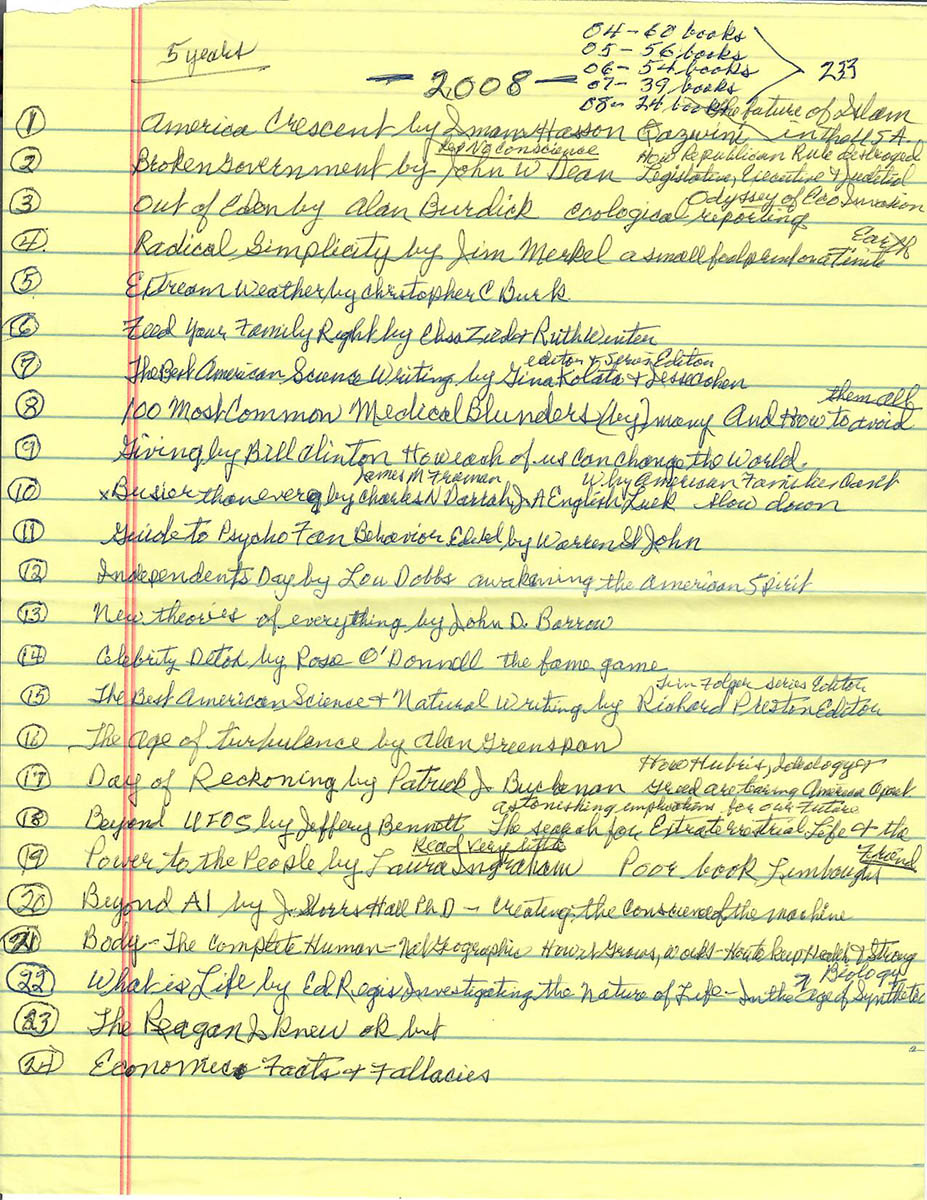 5 years
04 - 60 books
05 - 56 books
06 - 54 books
07 - 39 books
08 - 24 books
233
- 2008 -
The future of Islam
1 America Crescent by Imam Hasson Qazwini in the USA
Rep No Conscience
How Republican Rule destroyed
2 Broken Government by John W Dean Legislative, Executive & Judicial
Odyssey of Eco Invasion
3 Out of Eden by Alan Burdick ecological reporting
Earth
4. Radical Simplicity by Jim Merkel a small footprint on a Finite
5 Extream Weather by Christopher C Burk
6 Feed Your Family Right by Elisa Zied & Ruth Winter
editor & Series Editor
7 The Best American Science Writing by Gina Kolata & Jesse Cohen
them all
8 100 Most Common Medical Blunders (by) many And How to avoid
9 Giving by Bill Clinton How each of us can change the World.
James M Freeman Why American Families Can't
10 x Busier than ever by Charles N Darrah J. A English Lueck slow down
11 Guide to Psycho Fan Behavior Edited by Warren St John
12 Independents Day by Lou Dobbs awakening the American Spirit
13 New theories of everything by John D. Barrow
14 Celebrity Detox by Rose O'Donnell the fame game
Tim Folger series Editor
15 The Best American Science & Natural Writing by Richard Preston Editor
16 The Age of turbulance by Alan Greenspan
How Hubris, Ideology &
17 Day of Reckoning by Patrick J Buckanan Greed are tearing America Apart
astonishing implications for our Future
18 Beyond UFOS by Jeffery Bennett The search for Extraterrestrial Life & the
Read Very little
Friend
19 Power to the People by Laura Ingraham Poor book Limbaughs
20 Beyond AI by J. Storrs Hall PhD - Creating the Conscience of the machine
21 Body - The Complete Human - Nat Geographic How it Grows, works - How to keep Health & Strong
Biology
22 What is Life by Ed Regis Investigating the Nature of Life - In the Age of Synthetic
23 The Reagan I knew ok but
24 Economic Facts & Fallacies